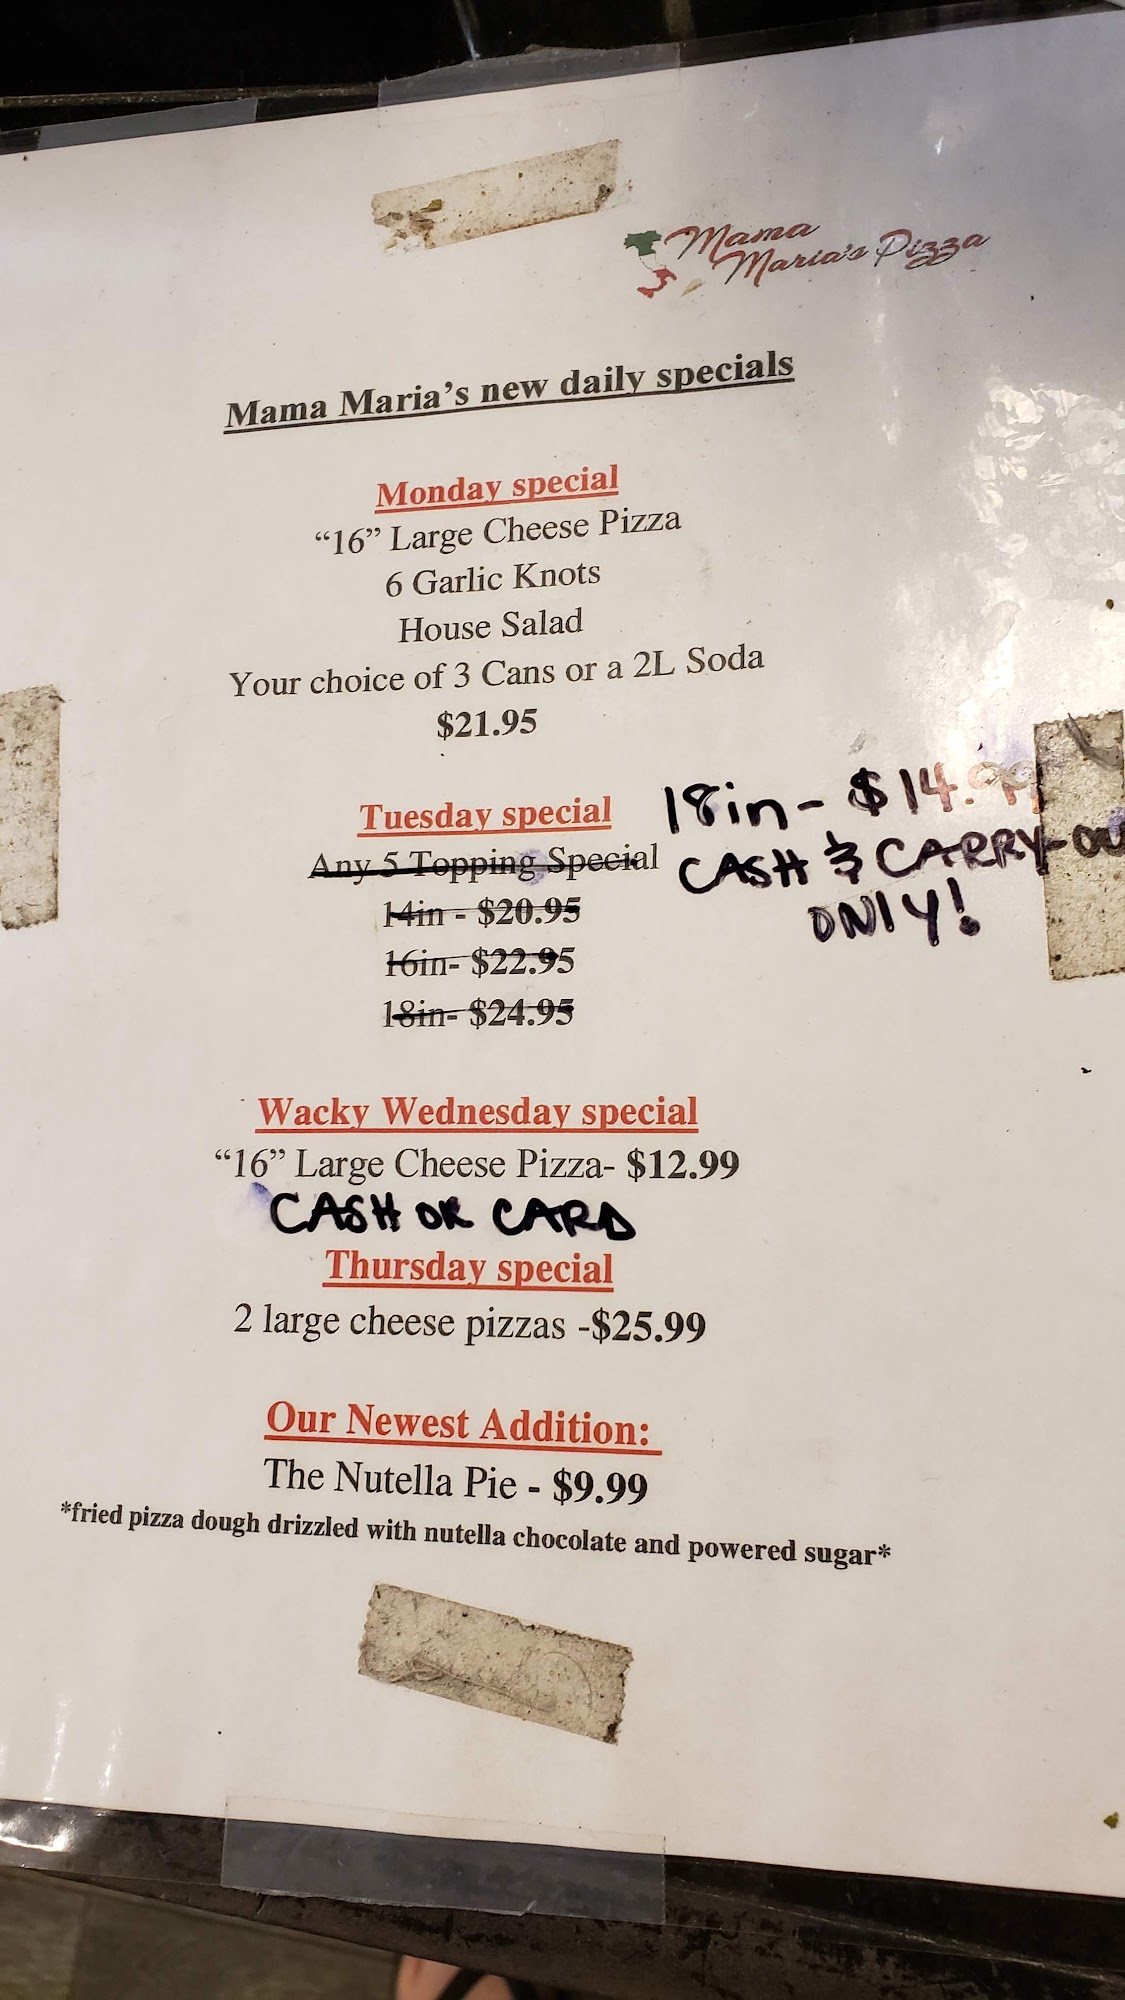 Mama
Maria's Pizza
Mama Maria's new daily specials
Monday special
“16” Large Cheese Pizza
6 Garlic Knots
House Salad
Your choice of 3 Cans or a 2L Soda
$21.95
Tuesday special
Any 5 Topping Special
14in - $20.95
16in- $22.95
18in- $24.95
18in- $14.99
CASH & CARRY-OU
ONLY!
Wacky Wednesday special
“16” Large Cheese Pizza- $12.99
CASH OR CARD
Thursday special
2 large cheese pizzas -$25.99
Our Newest Addition:
The Nutella Pie - $9.99
*fried pizza dough drizzled with nutella chocolate and powered sugar*